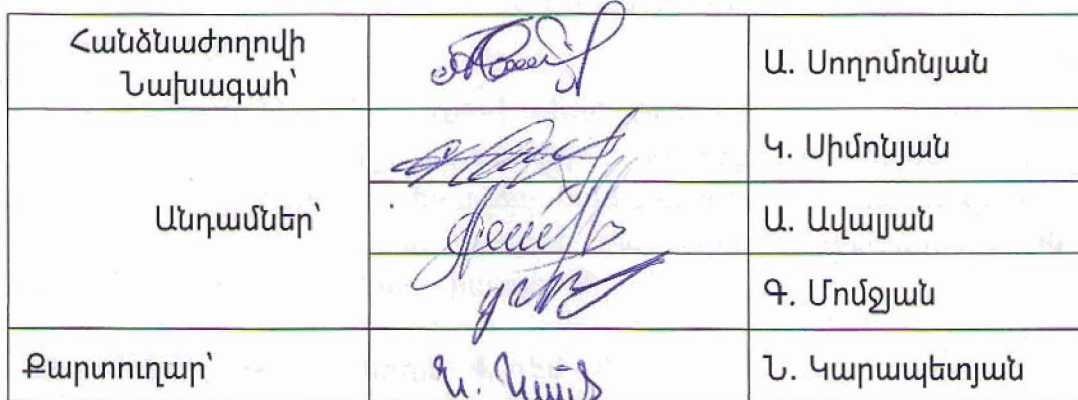 Հանձնաժողովի
Նախագահ՝
Ա. Սողոմոնյան
Կ. Սիմոնյան
Անդամներ՝
Ա. Ավալյան
Գ. Մոմջյան
Քարտուղար՝
Ն. Կարապետյան